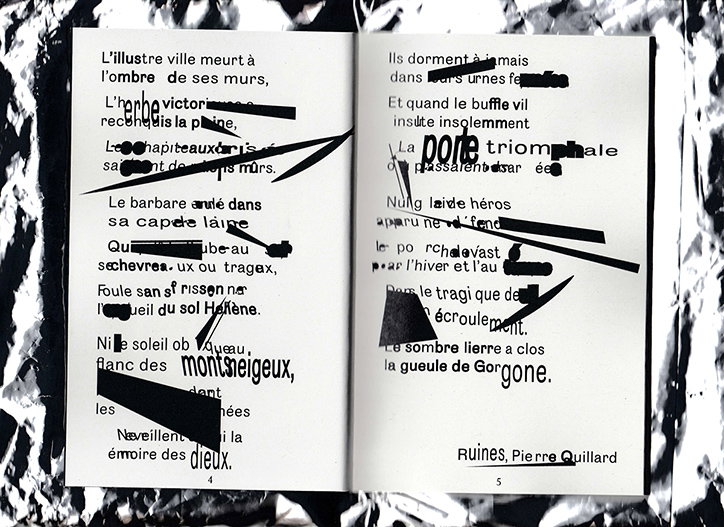 L'illustre ville meurt à
l'ombre de ses murs,
L'herbe victorieuse a
reconquis la plaine,
Les chapiteaux
saignent de mûrs.
Le barbare enroulé dans
sa cape de laine
Qui au
chevres. ux ou trageux,
Foule sans frissonner
l'orgueil du sol Hellène.
Ni le soleil oblique au
flanc des monts neigeux,
dant
les nées
Ne veillent la
émoire des dieux.
4
Ils dorment à jamais
dans leurs urnes fermées
Et quand le buffle vil
insulte insolemment
La porte triomphale
où passaient des ar ées
Nul glaive de héros
apparu ne défend
le porche dévasté
par l'hiver et l'au
Dans le tragique de
écroulement.
Le sombre lierre a clos
la gueule de Gorgone.
Ruines, Pierre Quillard
5